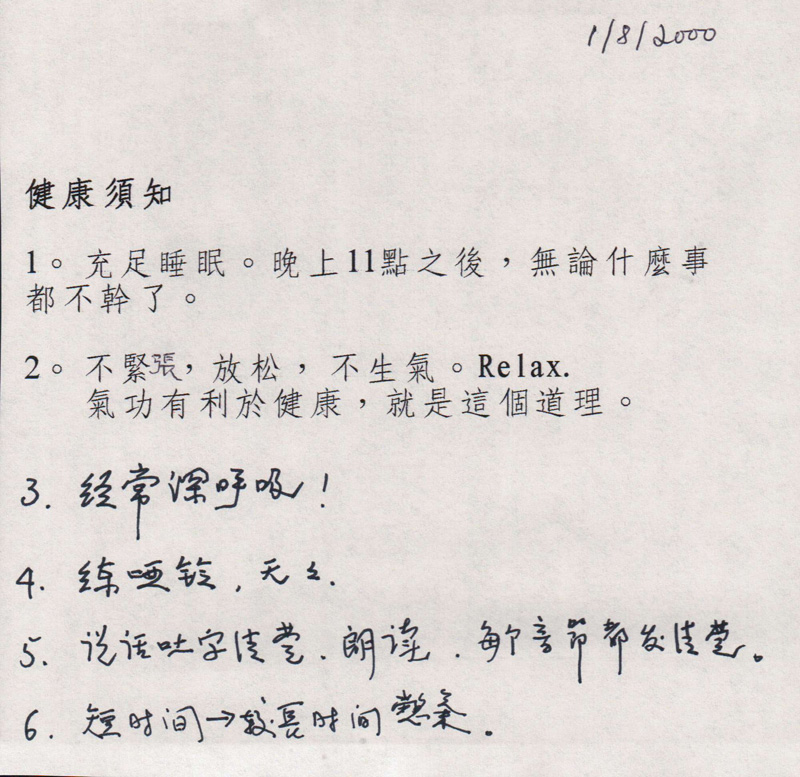 1/8/2000
健康須知
1。充足睡眠。晚上11點之後，無論什麼事
都不幹了。
2。不緊張，放松，不生氣。Relax.
氣功有利於健康，就是這個道理。
3. 经常深呼吸！
4. 练哑铃，天々.
5. 说话吐字清楚、朗读、每个音节都发清楚。
6. 短时间→较長时间憋氣。